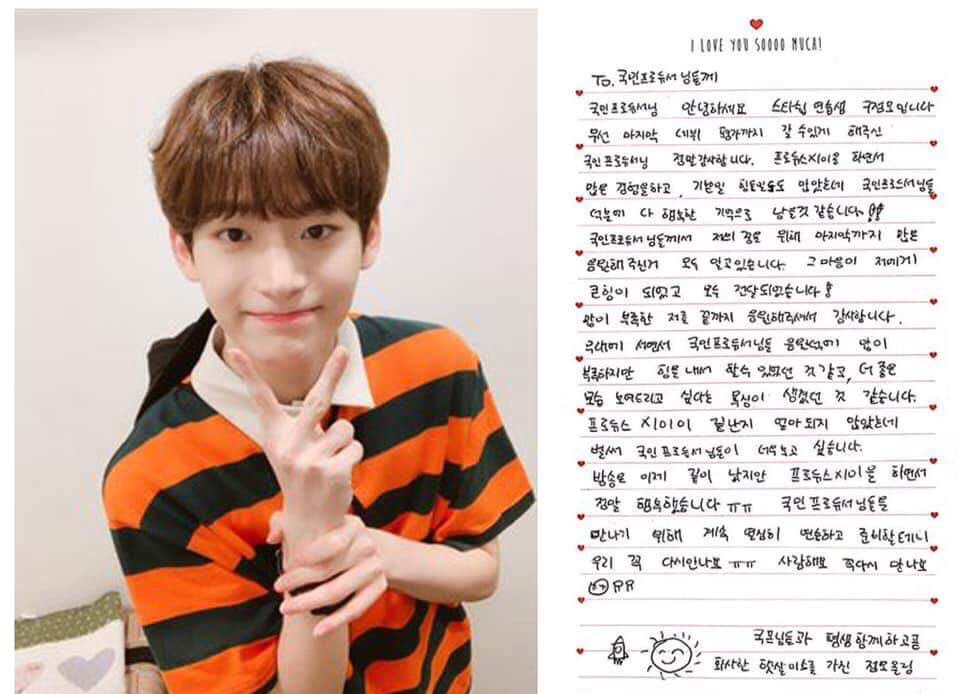 I LOVE YOU SOOOO MUCH!
To. 국민프로듀서님들께
국민프로듀서님 안녕하세요 스타쉽 연습생 구정모입니다
우선 마지막 데뷔 평가까지 갈 수 있게 해주신
국민프로듀서님 정말감사합니다. 프로듀스X101을 하면서
많은 경험을하고, 기쁜일 힘든일들도 많았는데 국민프로듀서님들
덕분에 다 행복한 기억으로 남을것 같습니다!!
국민프로듀서님들께서 저의 꿈을 위해 마지막까지 많은
응원해주신거 모두 알고있습니다. 그 마음이 저에게
큰힘이 되었고 모두 전달되었습니다!
많이 부족한 저를 끝까지 응원해주셔서 감사합니다.
무대에 서면서 국민프로듀서님들 응원덕에 많이
부족하지만 힘을 내서 할수 있었던 것 같고, 더 좋은
모습 보여드리고 싶다는 욕심이 생겼던 것 같습니다.
프로듀스 X101이 끝난지 얼마 되지 않았는데
벌써 국민프로듀서님들이 너무보고 싶습니다.
방송은 이제 끝이 났지만 프로듀스X101을 하면서
정말 행복했습니다 ㅠㅠ 국민프로듀서님들을
만나기 위해 계속 열심히 연습하고 준비할테니
우리 꼭 다시만나요 ㅠㅠ 사랑해요 꼭다시 만나요
국프님들과 평생 함께하고픈
화사한 햇살미소를 가진 정모올림